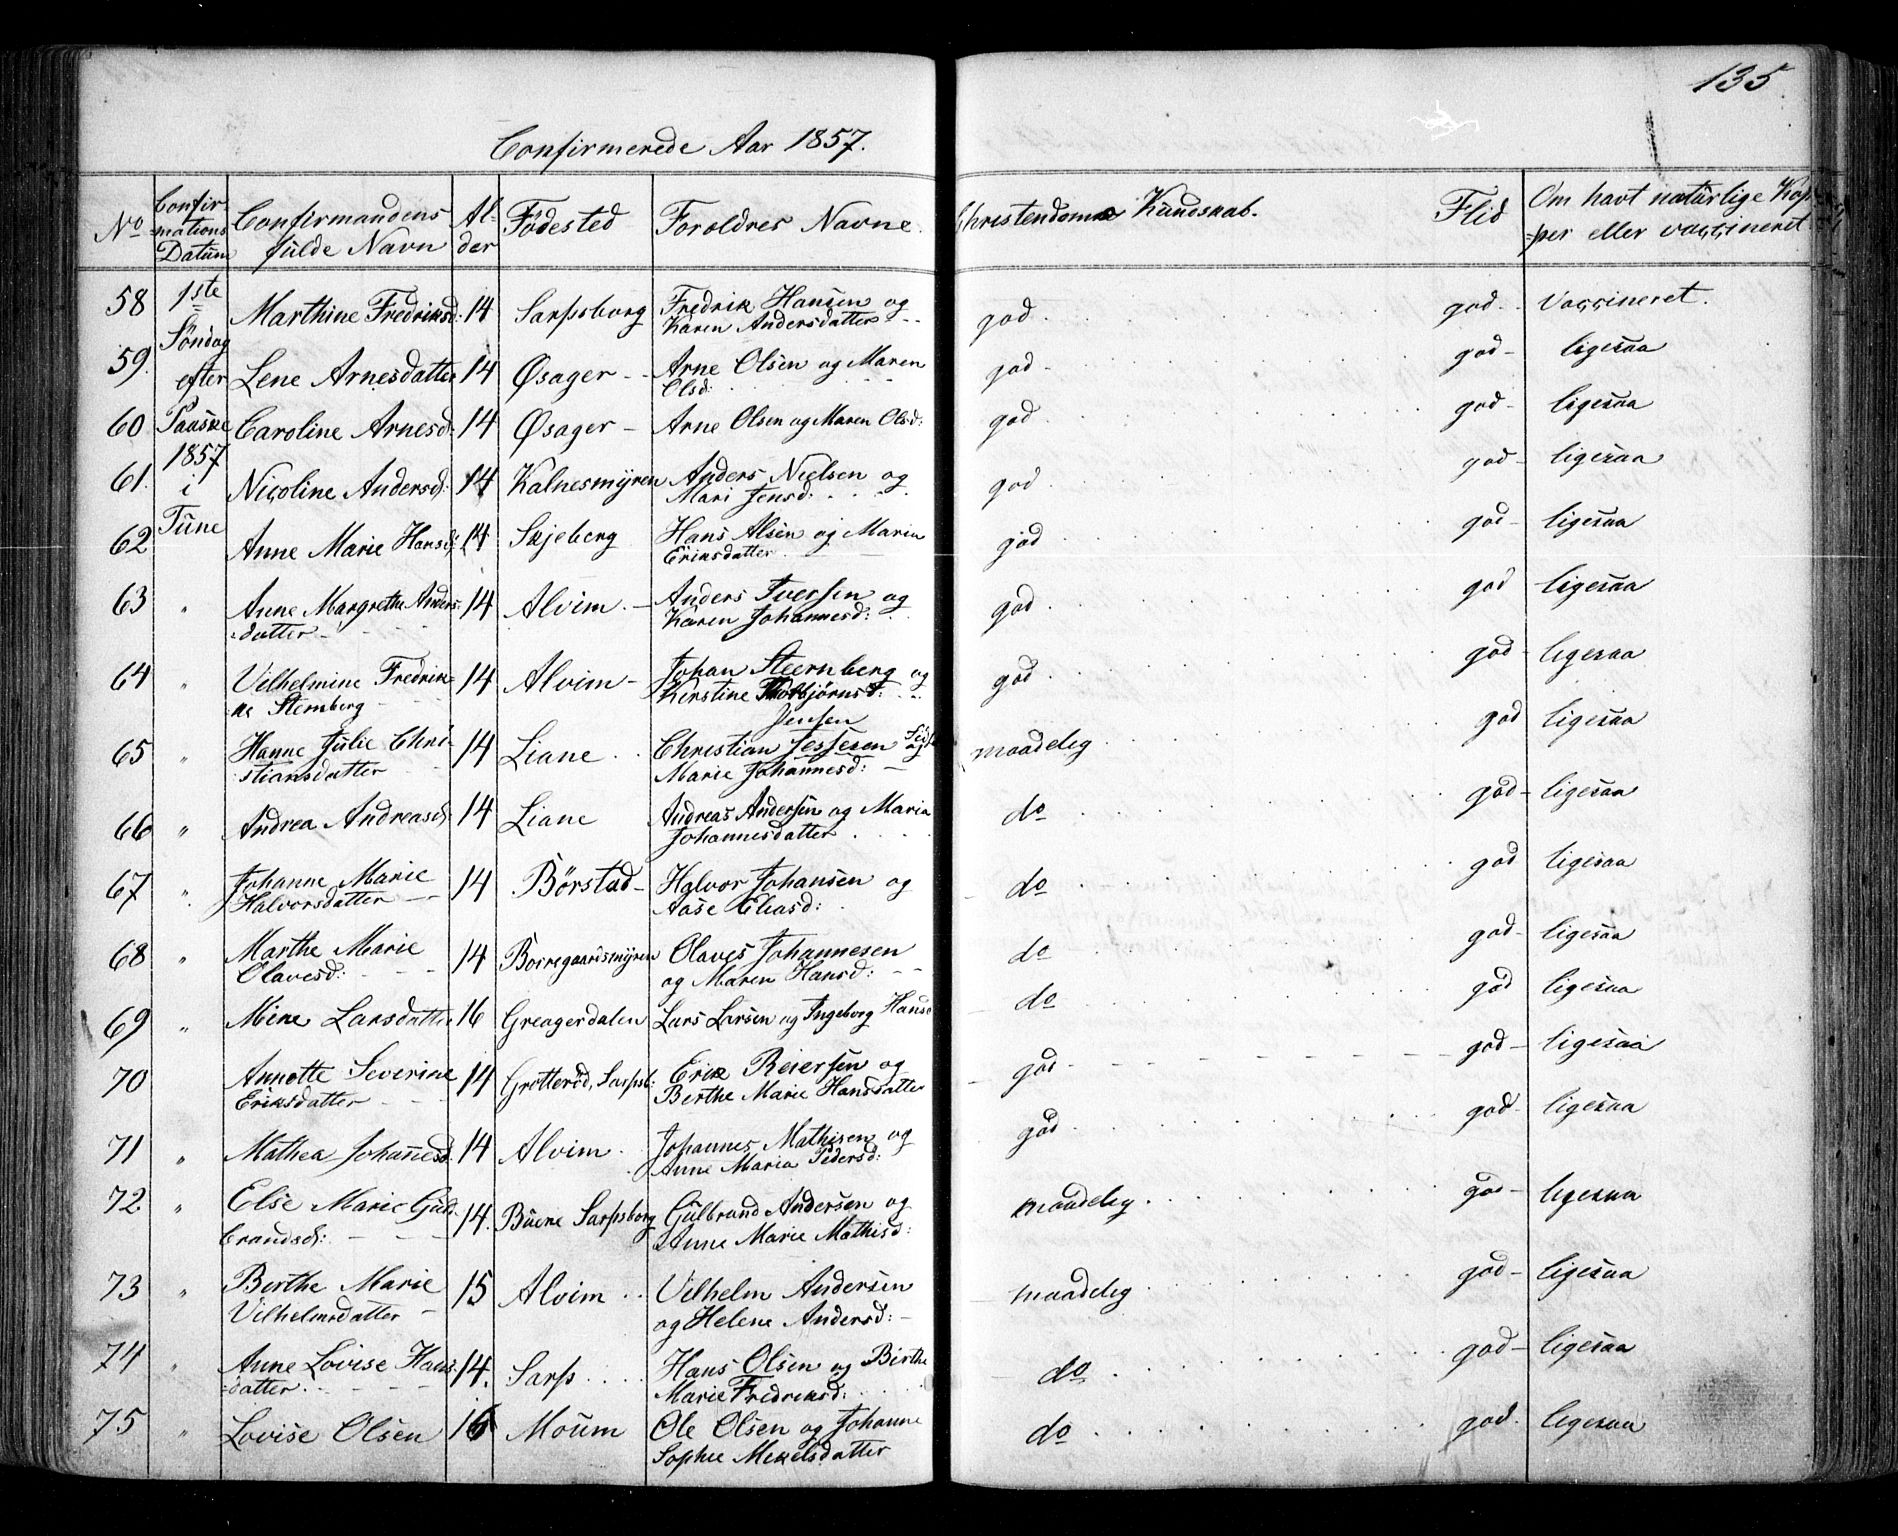 135
Confirmerede Aar 1857.
No Confirmations Datum Confirmandens fulde Navn Alder Födested Foroldres Navne Christendoms Kundskab. Flid Om havt natürlige Kopper eller vaccineret
58 1ste Söndag efter Paaske 1857 i Tune Marthine Fredriksd: 14 Sarpsborg Fredrik Hansen og Karen Andersdatter god god Vaccineret.
59. Lene Arnesdatter 14 Øsager Arne Olsen og Maren Olsd: god god ligesaa
60 Caroline Arnesd: 14 Øsager Arne Olsen og Maren Olsd: god god ligesaa
61. Nicoline Andersd: 14 Kalnesmyren Anders Nielsen og Mari Jensd: god god ligesaa
62 Anne Marie Hansd: 14 Skjeberg Hans Alsen og Maria Eriksdatter god god ligesaa
63 " Anne Margrethe Andersdatter 14 Alvim Anders Iversen og Karen Johannesd: god god ligesaa
64 " Vilhelmine Fredrikke Sternberg 14 Alvim Johan Steernberg og Kerstine Thorbjørnsd: god god ligesaa
65 " Hanne Julie Christiansdatter 14 Liane Christian Jessesen Jensen og Marie Johannesd: maadelig god ligesaa
66 " Andrea Andreasd: 14 Liane Andreas Andersen og Maria Johannesdatter do god ligesaa
67 " Johanne Marie Halvorsdatter 14 Börstad Halvor Johansen og Aase Eliasd: do god ligesaa
68 " Marthe Marie Olavesd: 14 Borregaardsmyren Olaves Johannesen og Maren Hansd: do god ligesaa
69 " Mine Larsdatter 16 Greagerdalen Lars Larsen og Ingeborg Hansd do god ligesaa
70 Annette Severine Eriksdatter 14 Grotteröd, Sarpsb: Erik Reiersen og Berthe Marie Hansdatter god god ligesaa
71 " Mathea Johanesd. 14 Alvim Johannes Mathisen og Anne Maria Pedersd: god god ligesaa
72. " Else Marie Gulbrandsd: 14. Buene Sarpsborg Gulbrand Andersen og Anne Marie Mathisd: maadelig god ligesaa
73 " Berthe Marie Vilhelmsdatter 15 Alvim Vilhelm Andersen og Helene Andersd: maadelig god ligesaa
74 " Anne Lovise Hansdatter 14. Sarp Hans Olsen og Birthe Marie Fredriksd: do god ligesaa
75 " Lovise Olsen 16 Moum Ole Olsen og Johanne Sophie Mikelsdatter do god. ligesaa